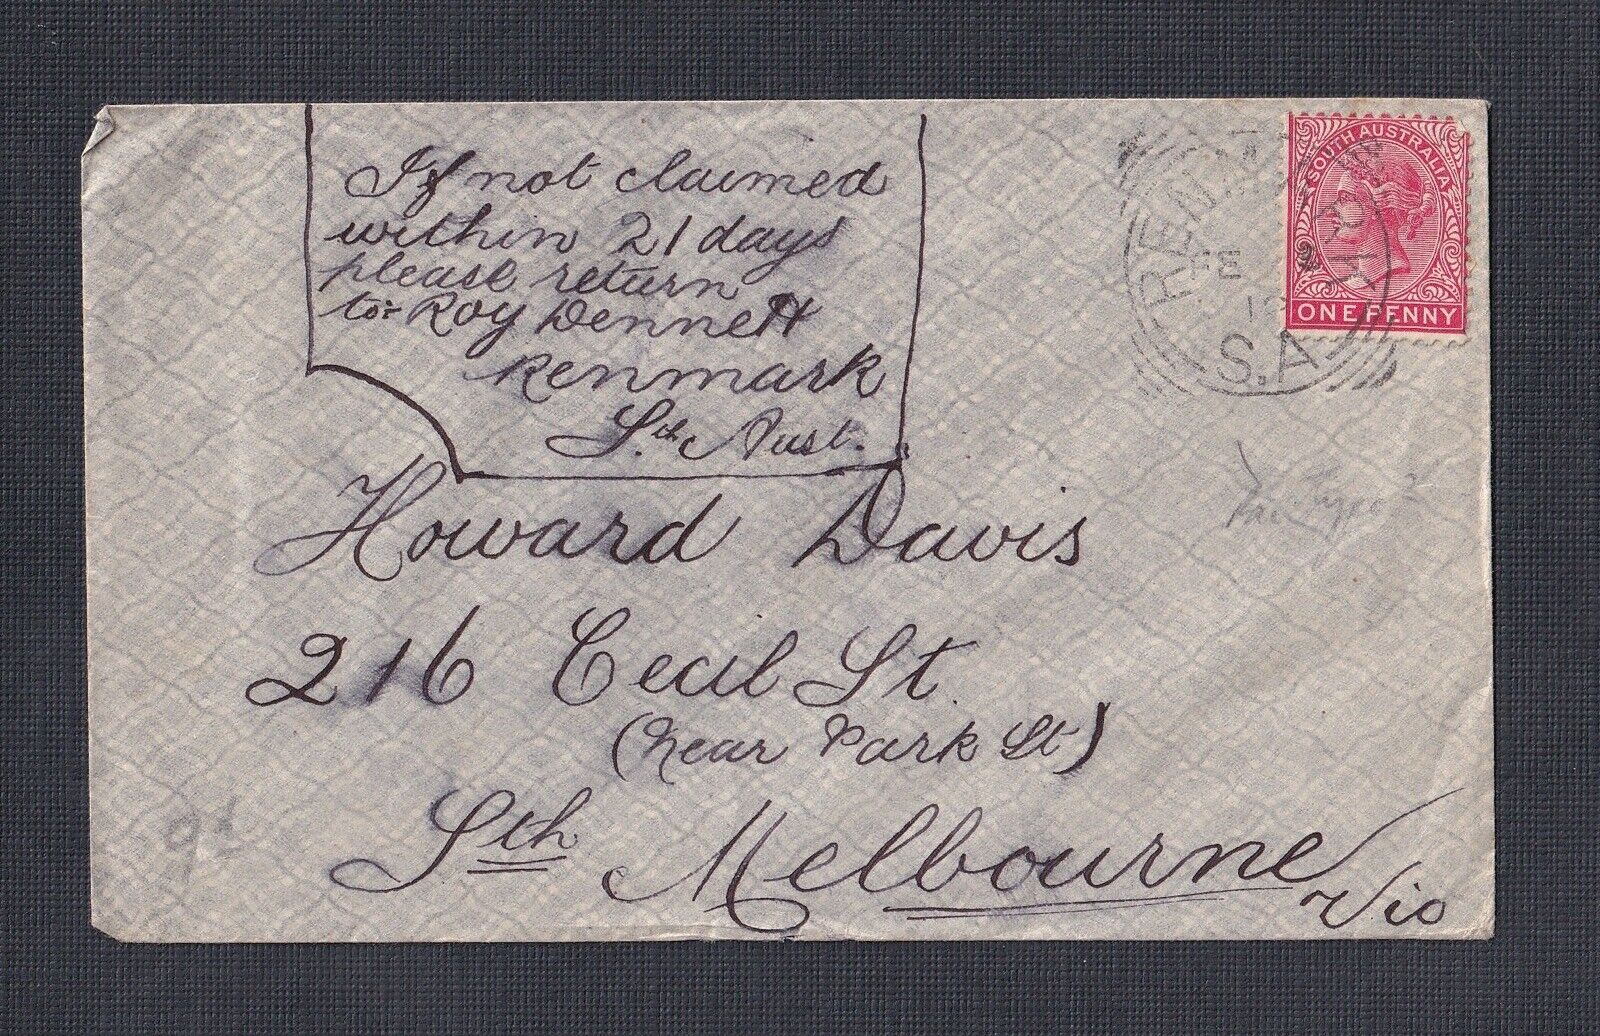 If not claimed
within 21 days
please return
to:- Roy Dennett
Renmark
Sth Aust.
SOUTH AUSTRALIA
ONE PENNY
S.A
Howard Davis
216 Cecil St
(near Park St)
Sth Melbourne
Vic
9d